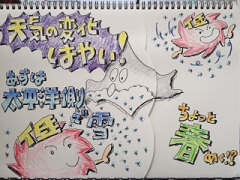 天気の変化
はやい!
まずは
太平洋側で
雪
低
低
ちょっと
春
めく!?